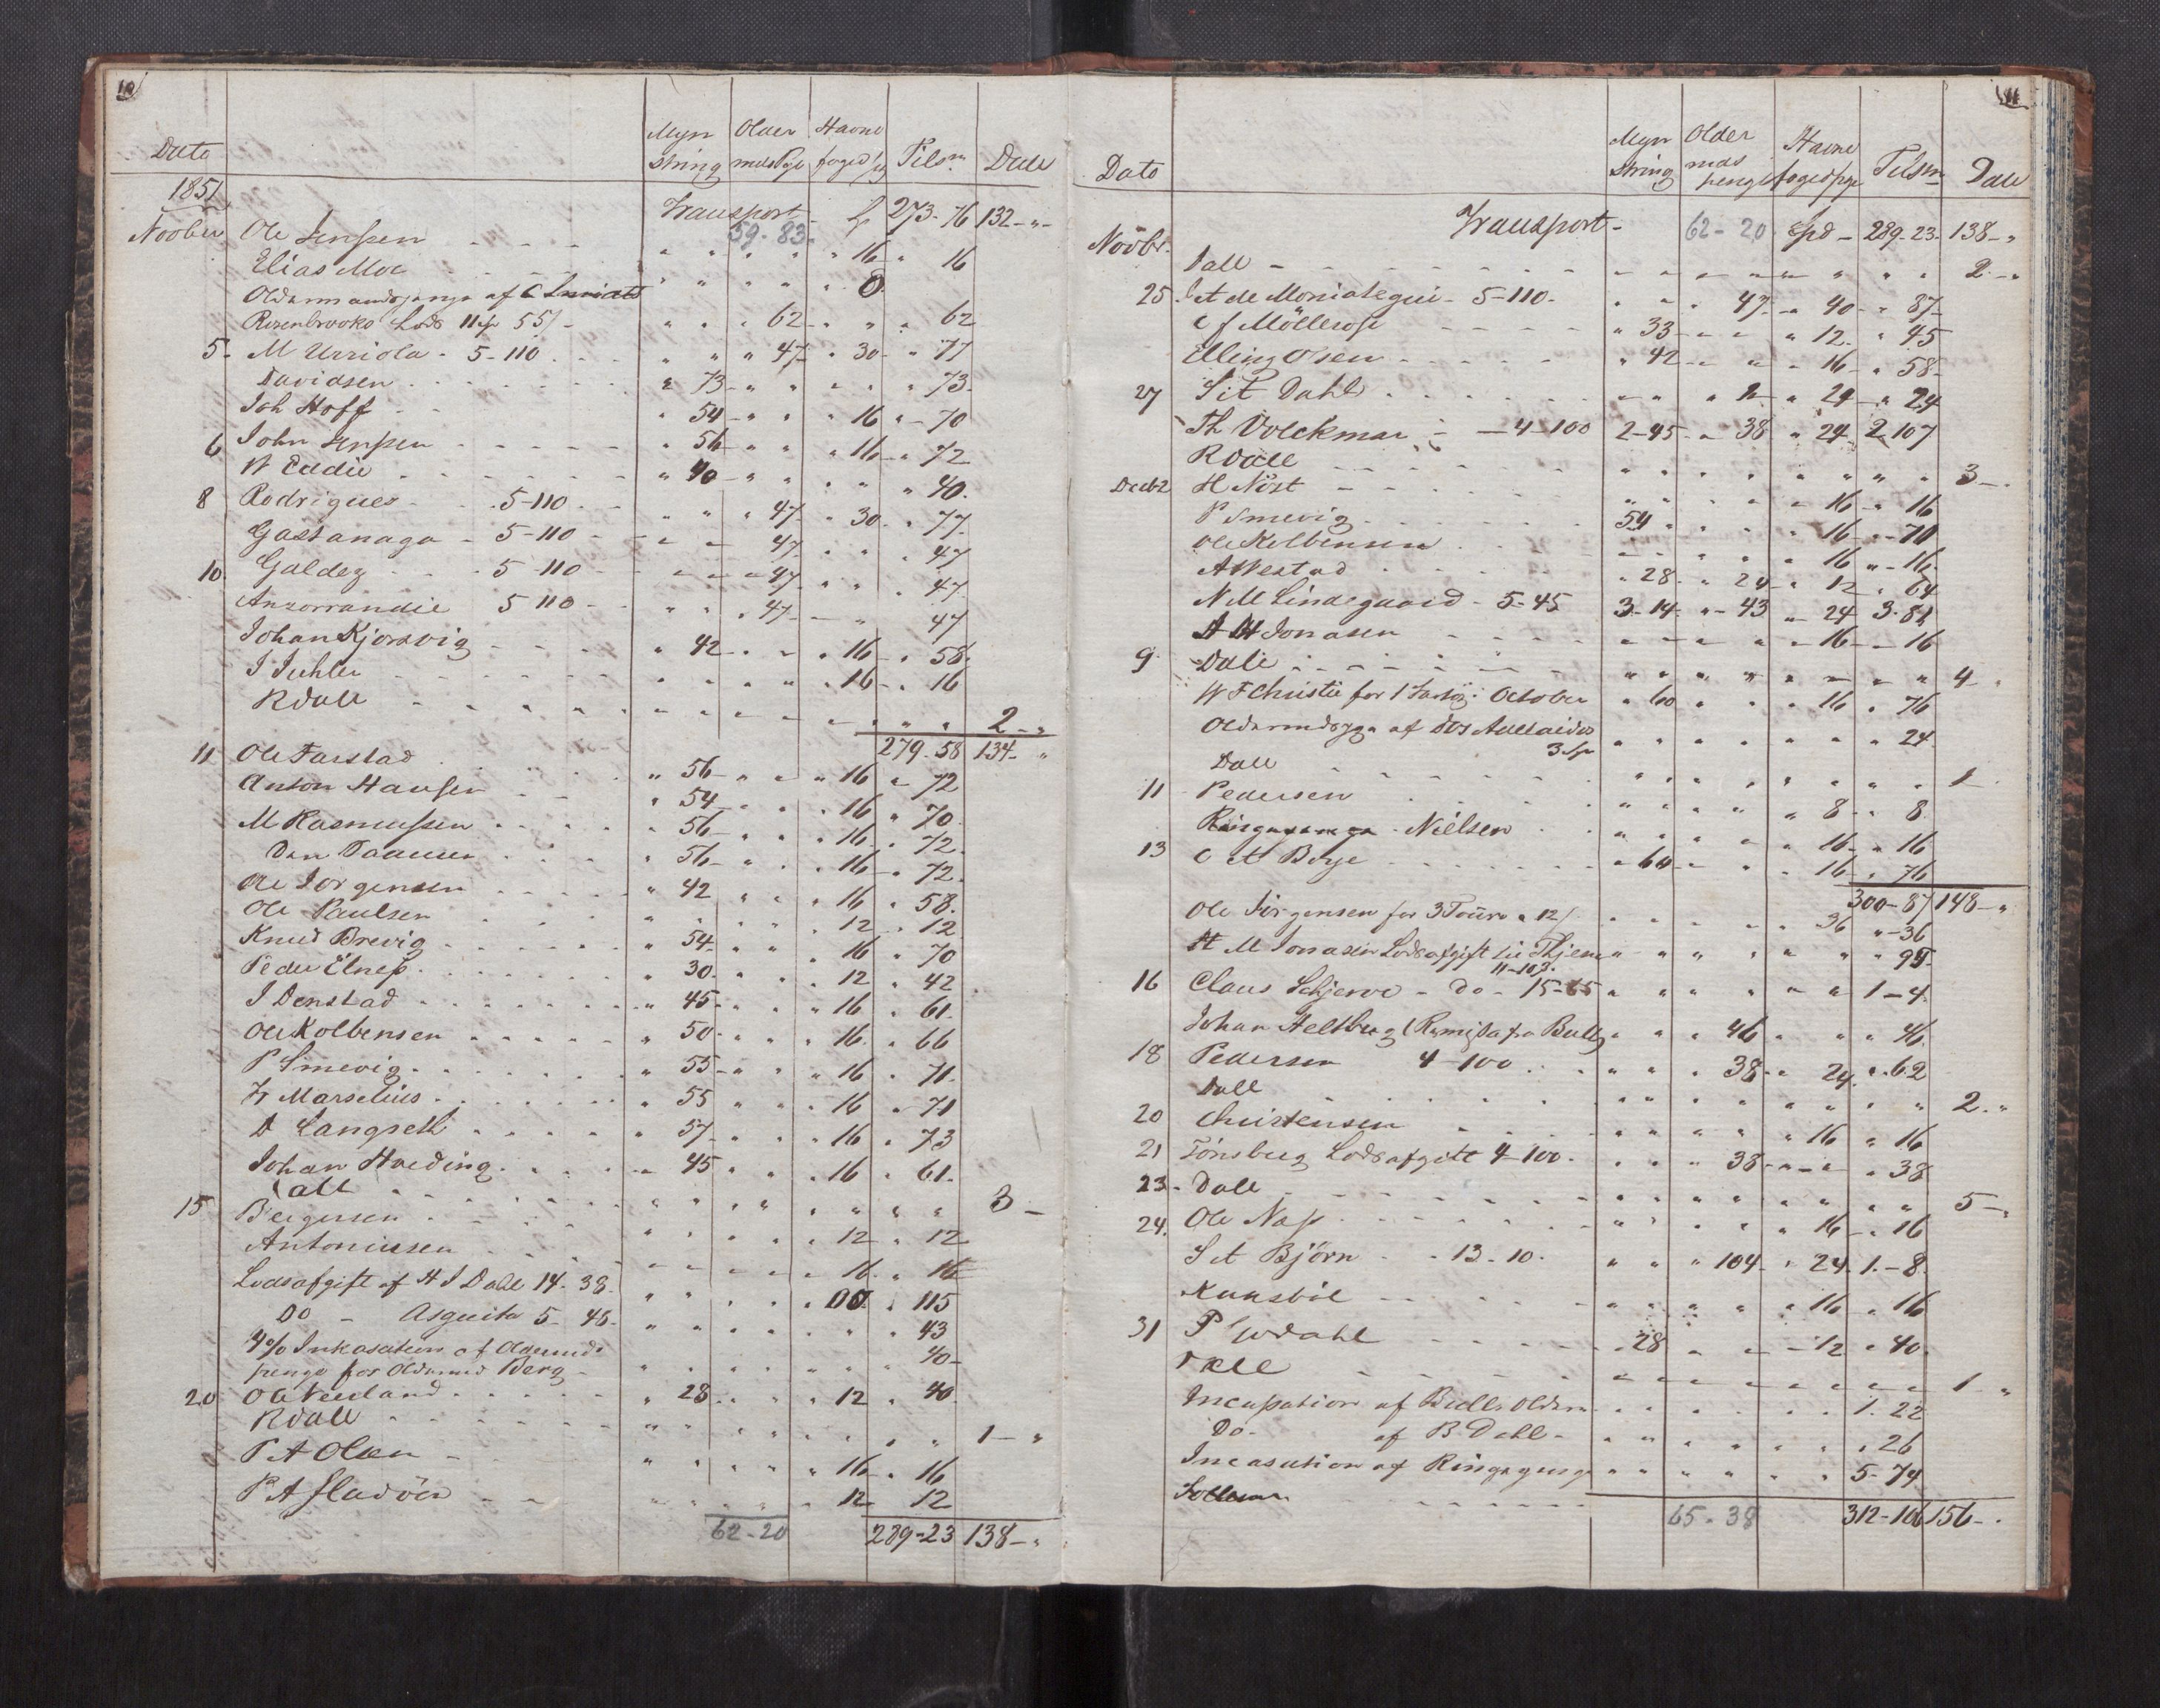 10
Dato Myn Older Havne
string mdsPge foged pg Tilsm Dall
1851
Transport 273-76 132-"-
59-83
Novber Ole Jenssen " " " " " 16 " 16
Elias Moe " " " " " 8
Oldermandspenge af C
Rosenbrooks Lods 11 sp 55/- " " " 62 " " " 62
5- M Urriola - 5-110 " " " 47 " 30 - " 77
Davidsen " 73 - " " " " " 73
Joh Hoff " 54 - " " " 16 " 70
6 John Jenssen " 56 " " " 16 " 72
W Eddie " 40 - " " " " " 40
8 Rodrigues 5-110 " " " 47 " 30 " 77
Gastanaga - 5-110 - - " - 47 " " " 47
10 Galdez 5-110 - - - 47 " " " 47
Anzorrandie 5 110 - " " " 47 - - " 47
Johan Kjorsvig " 42 - " - " 16 - " 58
J Juhler " " " " " 16 - " 16
R Dall 2-"
279-58 134-"
11 Ole Farstad " 56 - " " " 16 " 72
Anton Hansen " 54 " " " 16 " 70
M Rasmussen " 56 - " " " 16 " 72
Dan Paausen " 56 - " " " 16 - " 72
Ole Jorgensen " 42 " " " 16 " 58
Ole Paulsen " " " " " 12 " 12
Knud Brevig " 54 - " " " 16 " 70
Peder Elness " 30 " " " 12 " 42
J Denstad " 45 - " " " 16 " 61
Ole Kolbensen " 50 - " " " 16 " 66
P Smevig " 55 - " " " 16 " 71
Fr Marselius " 55 " " " 16 " 71
D Langseth " 57 - " " " 16 " 73
Johan Harding - 45 " " " 16 " 61
Dall " " " " " " " " 3 -
15 Bergersen " " " " " 12 " 12
Antoniusen - - - - - 16 " 16
Lodsafgift af H J Dahl 14-38 " " " " " " 115
Do - Asquith 5-48 " " " " " " " 43
4% Inkasation af Oldermds 40-
penge for Oldermd Berg
20 O A Veeland " 28 " " " 12 " 40
R Dall 1-"
P A Olsen " " " " " 16 " 16
P A Fladöen " " " " " 12 12
62-20 289-23 138-"
11
Dato Myn Older Havne
string mds penge foged pge Tilsm Dall
Transport - 62-20 Spd - 289-23 138-"
Novbr. Dall - 2-"
25 J A de Moniategui - 5-110 " " " 47 - " 40 - " 87-
C J Mölleross " 33 - " - " 12 " 45
Elling Olsen " 42 - " " " 16 - " 58-
27 S A Dahl " 24 - " 24
Th Volckmar - 4-100 2-45 - " 38 " 24 2-107
R Dall " " " " " " " " 3-
Decbr H Nöst " " " " - 16 - " 16
P Smevig 54 " " " " 16 - " 70
Ole Kolbensen " " " 16 " - 16
A Westad " 28 - " 24 " 12 " 64
N M Lindegaard - 5-45 3-14 - " - 43 " - 24 3-81
H M Jonasen - - - " - 16 - - 16
9 Dall - 4 "
W F Christie for 1 October " 60 " " " 16 " 76
Oldermdspge af Dos Adelaides
3 Sp " " " " " " " 24
Dall 1
11 Pedersen " " " " " 8 " " 8
Nielsen " " " " " 16 - " 16
13 C A Boye " 60 - " " 16 " 76
300-87 148-"
Ole Jörgensen for 3 Toure a 12/ " " " - " 36 " - 36
H M Jonasen Lodsafgift
11-103 " " " 95
16 Claus Schjerve - Do - 15-65 " " " " " " 1-4
Johan Heltberg (Remissa fra Bull) " " " 46 " " " 46
18 Pedersen 4-100 " " " 38 - " 24 " " 62
Dall 2-"
20 Christensen " " " " " 16 " 16
21 Tönsberg Lodsafgift 4-100 " " " 38 - - " " 38
23- Dall 5-"
24. Ole Nass " " " " " 16 - " 16
S A Björn - 13-10 " " " 104 - " 24 1-8
" " " " " 16 " 16
31 P Updahl " 28 " " - 12 " 40
Dall 1 "
Incassation af Bulls Olderm " " " " " " 1-22
Do- af B Dahl- " " " " " " " 26
Incasation af Ringepenge " " " " " " 5-74
65-38 312-106 156-"